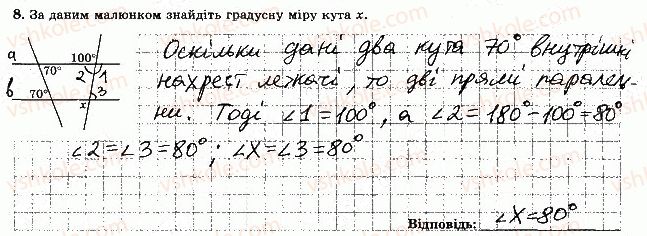 8. За даним малюнком знайдіть градусну міру кута x.
a 100° 70° 2 1
b 70° x 3
Оскільки дані два кута 70° внутрішні
нахрест лежачі, то дві прямі паралель-
ни. Тоді ∠1=100°, а ∠2=180°-100°=80°
∠2=∠3=80°; ∠X=∠3=80°
Відповідь: ∠X=80°